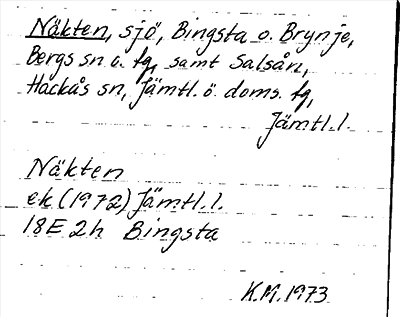 Näkten, sjö, Bingsta o. Brynje,
Bergs sn o. tg, samt Salsån,
Hackås sn, Jämtl. ö. doms. tg,
Jämtl. l.
Näkten
ek (1972) Jämtl. l.
18E 2h Bingsta
K.M. 1973